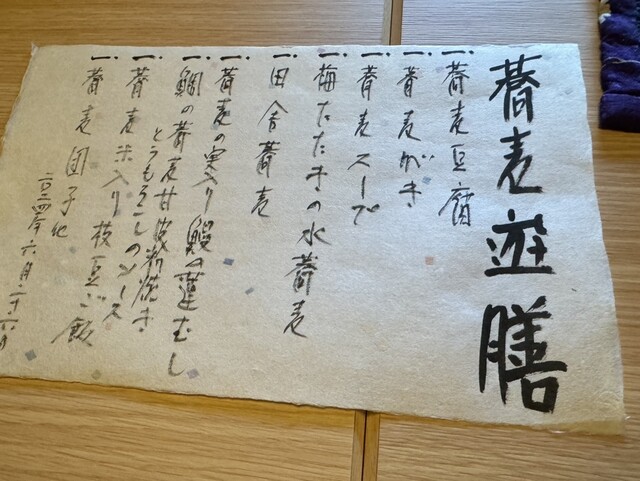 蕎麦遊膳
一、蕎麦豆腐
一、蕎麦がき
一、蕎麦スープ
一、梅たたきの水蕎麦
一、田舎蕎麦
一、蕎麦の実入り鰻の蓮むし
一、鯛の蕎麦甘酒粕焼き
とうもろこしのソース
一、蕎麦米入り枝豆ご飯
一、蕎麦団子他
二〇二四年六月二十六日